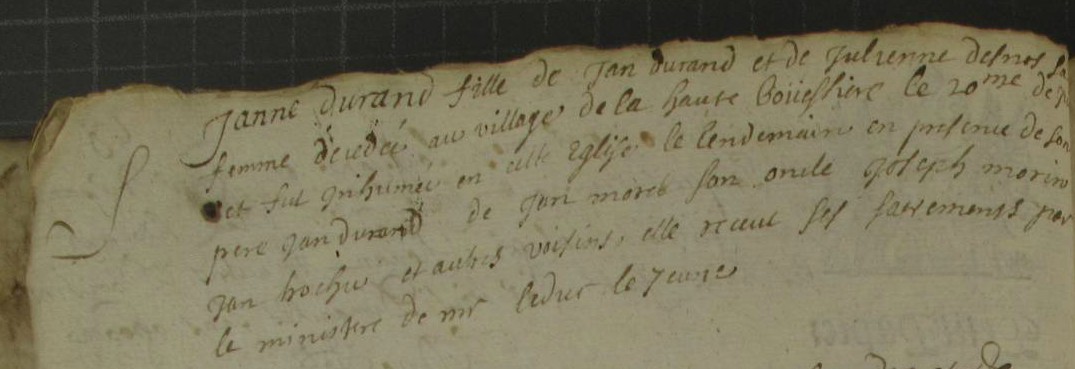 Janne durand fille de Jan durand et de Julienne desnos sa
femme décédée au village de la haute boüessiere le 20me de
et fut Inhumée en cette Eglise le lendemain en presence de son
pere Jan durand de Jan morel son oncle Joseph morin
Jan hochu et autres voisins, elle receut ses sacrements par
le ministere de mr leduc le Jeune